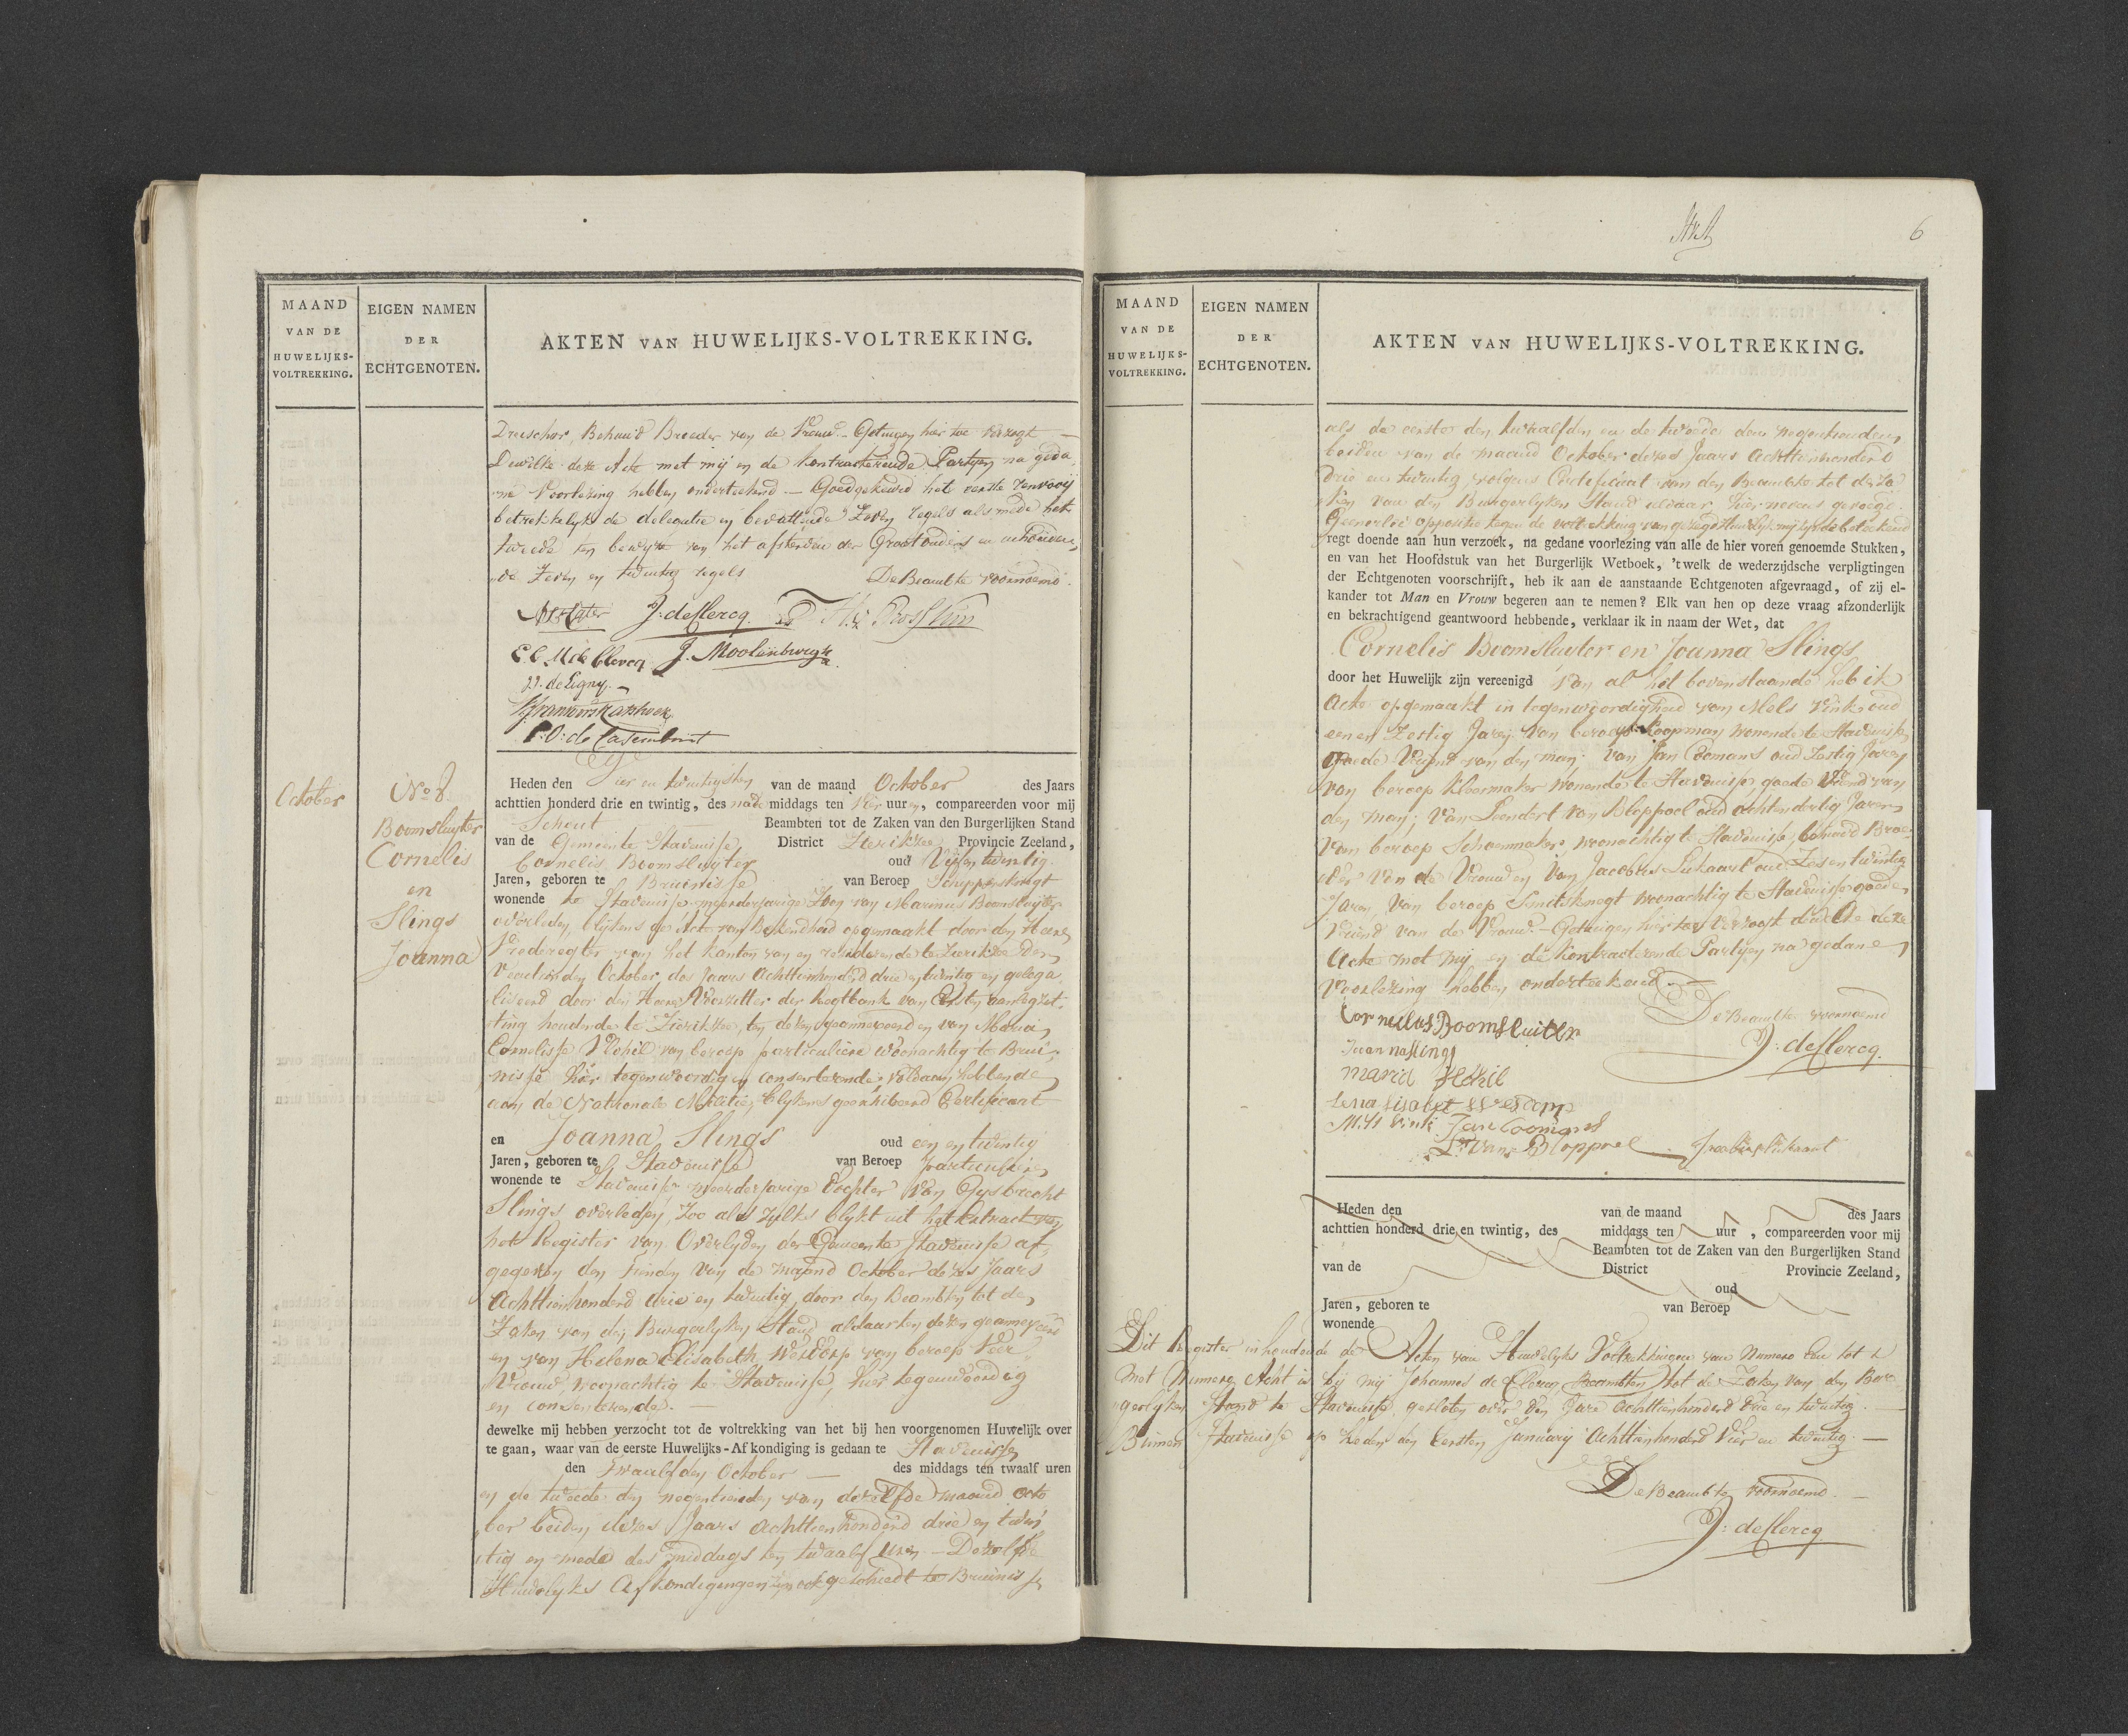 MAAND
VAN DE
HUWELIJKS-
VOLTREKKING.
EIGEN NAMEN
DER
ECHTGENOTEN.
AKTEN VAN HUWELIJKS-VOLTREKKING.
Dreischor, Behuwd Broeder van de Vrouw. - Getuigen hier toe verzogt -
Dewelke deze Acte met mij en de Kontracterende Partijen na geda
ne Voorlezing hebben onderteekend - Goedgekeurd het eerste renvooij
betrekkelijk de delegatie en bevattende Zeven regels als mede het
tweede ten bewijze van het afsterven der Grootouders en inhouden
de Zeven en twintig regels De Beambte voornoemd.
J. de Clercq
C. C. M. de Clercq J. Moolenburgh
P. de Ligny.
October
No 8.
Boomsluyter
Cornelis
en
Slings
Joanna
Heden den Vier en twintigsten van de maand October des Jaars
achttien honderd drie en twintig, des nade middags ten Vier uuren, compareerden voor mij
Schout Beambten tot de Zaken van den Burgerlijken Stand
van de Gemeente Stavenisse District Zierikzee Provincie Zeeland,
Cornelis Boomsluyter oud Vijf en twintig
Jaren, geboren te Bruinisse van Beroep Schippersknegt
wonende te Stavenisse meerderjarige Zoon van Marinus Boomsluijter
overleden, blijkens de Acte van Bekendheid opgemaakt door den Heere
Vrederegter van het Kanton van en resideerende te Zierikzee den
Veertienden October des Jaars Achttienhonderd drie en twintig en gelega
liseerd door den Heere Voorzitter der Regtbank van Eersten aanleg zit
ting houdende te Zierikzee, ten dezen geannexeerd en van Maria
Cornelisse Wohil van beroep particuliere woonachtig te Brui
nisse hier tegenwoordig en consenterende; voldaan hebbende
aan de Nationale Militie, blijkens geexhibeerd Certificaat
en Joanna Slings oud een en twintig
Jaren, geboren te Stavenisse van Beroep particuliere
wonende te Stavenisse meerderjarige Dochter van Gysbrecht
Slings overleden, Zoo als zulks blykt uit het Extract van
het Register van Overlyden der Gemeente Stavenisse af
gegeven den tienden van de maand October dezes Jaars
Achttienhonderd drie en twintig door den Beambten tot de
Zaken van den Burgerlyken Stand aldaar ten dezen geannexeerd
en van Helena Elisabeth Westdorp van beroep Veer
Vrouw, woonachtig te Stavenisse, hier tegenwoordig
en consenterende. -
dewelke mij hebben verzocht tot de voltrekking van het bij hen voorgenomen Huwelijk over
te gaan, waar van de eerste Huwelijks-Af kondiging is gedaan te Stavenisse
den Twaalfden October - des middags ten twaalf uren
en de tweede den negentienden van dezelfde maand Octo
ber beiden dezes Jaars Achttienhonderd drie en twin
tig en mede des middags ten twaalf uren - Dezelfde
Huwelyks Afkondigingen zijn ook geschiedt te Bruinisse
6
MAAND
VAN DE
HUWELIJKS-
VOLTREKKING.
EIGEN NAMEN
DER
ECHTGENOTEN.
AKTEN VAN HUWELIJKS-VOLTREKKING.
als de eerste den twaalfden en de tweede den negentienden
beiden van de maand October dezes Jaars Achttienhonderd
drie en twintig, volgens Certificaat van den Beambte tot de Za
ken van den Burgerlyken Stand aldaar hier nevens gevoegd.
Geenerlei oppositie tegen de voltrekking van gezegd Huwelijk mij zynde beteekend
regt doende aan hun verzoek, na gedane voorlezing van alle de hier voren genoemde Stukken,
en van het Hoofdstuk van het Burgerlijk Wetboek, 't welk de wederzijdsche verpligtingen
der Echtgenoten voorschrijft, heb ik aan de aanstaande Echtgenoten afgevraagd, of zij el-
kander tot Man en Vrouw begeren aan te nemen? Elk van hen op deze vraag afzonderlijk
en bekrachtigend geantwoord hebbende, verklaar ik in naam der Wet, dat
Cornelis Boomsluyter en Joanna Slings
door het Huwelijk zijn vereenigd Van al het bovenstaande heb ik
Acte opgemaakt in tegenwoordigheid van Mels Vink oud
een en Zestig Jaren van beroep Koopman wonende te Stavenisse
goede Vriend van den man; van Jan Coomans oud Zestig Jaren
van beroep Kleermaker wonende te Stavenisse goede Vriend van
den man; van Leendert van Bloppoel oud Achtendertig Jaren
van beroep Schoenmaker, woonachtig te Stavenisse, behuwd Broe
der van de Vrouw en van Jacobus Lukaart oud Zes en twintig
Jaren, van beroep Smitsknegt woonachtig te Stavenisse goede
Vriend van de Vrouw. - Getuigen hier toe verzogt dewelke deze
Acte met mij en de Kontracterende Partyen na gedane
Voorlezing hebben onderteekend. -
De Beambte voornoemd
J. de Clercq
Cornelus Boomsluiter
Juannaslings
maria Wohil
Lena Lisabet Westdorp
M.Js Vink Jan Coomans
Ln Van Bloppoel Jacobus Lukaart
Heden den van de maand des Jaars
achttien honderd drie en twintig, des middags ten uur , compareerden voor mij
Beambten tot de Zaken van den Burgerlijken Stand
van de District Provincie Zeeland,
oud
Jaren, geboren te van Beroep
wonende
Dit Register inhoudende de Acten van Huwelyks Voltrekkingen van Numero Een tot
met Numero Acht is bij mij Johannes de Clercq Beambten tot de Zaken van den Bur
gerlyken Stand te Stavenisse gesloten over den Jare Achttienhonderd drie en twintig. -
Binnen Stavenisse op heden den Eersten January Achttienhonderd Vier en twintig. -
De Beambte voornoemd. -
J. de Clercq